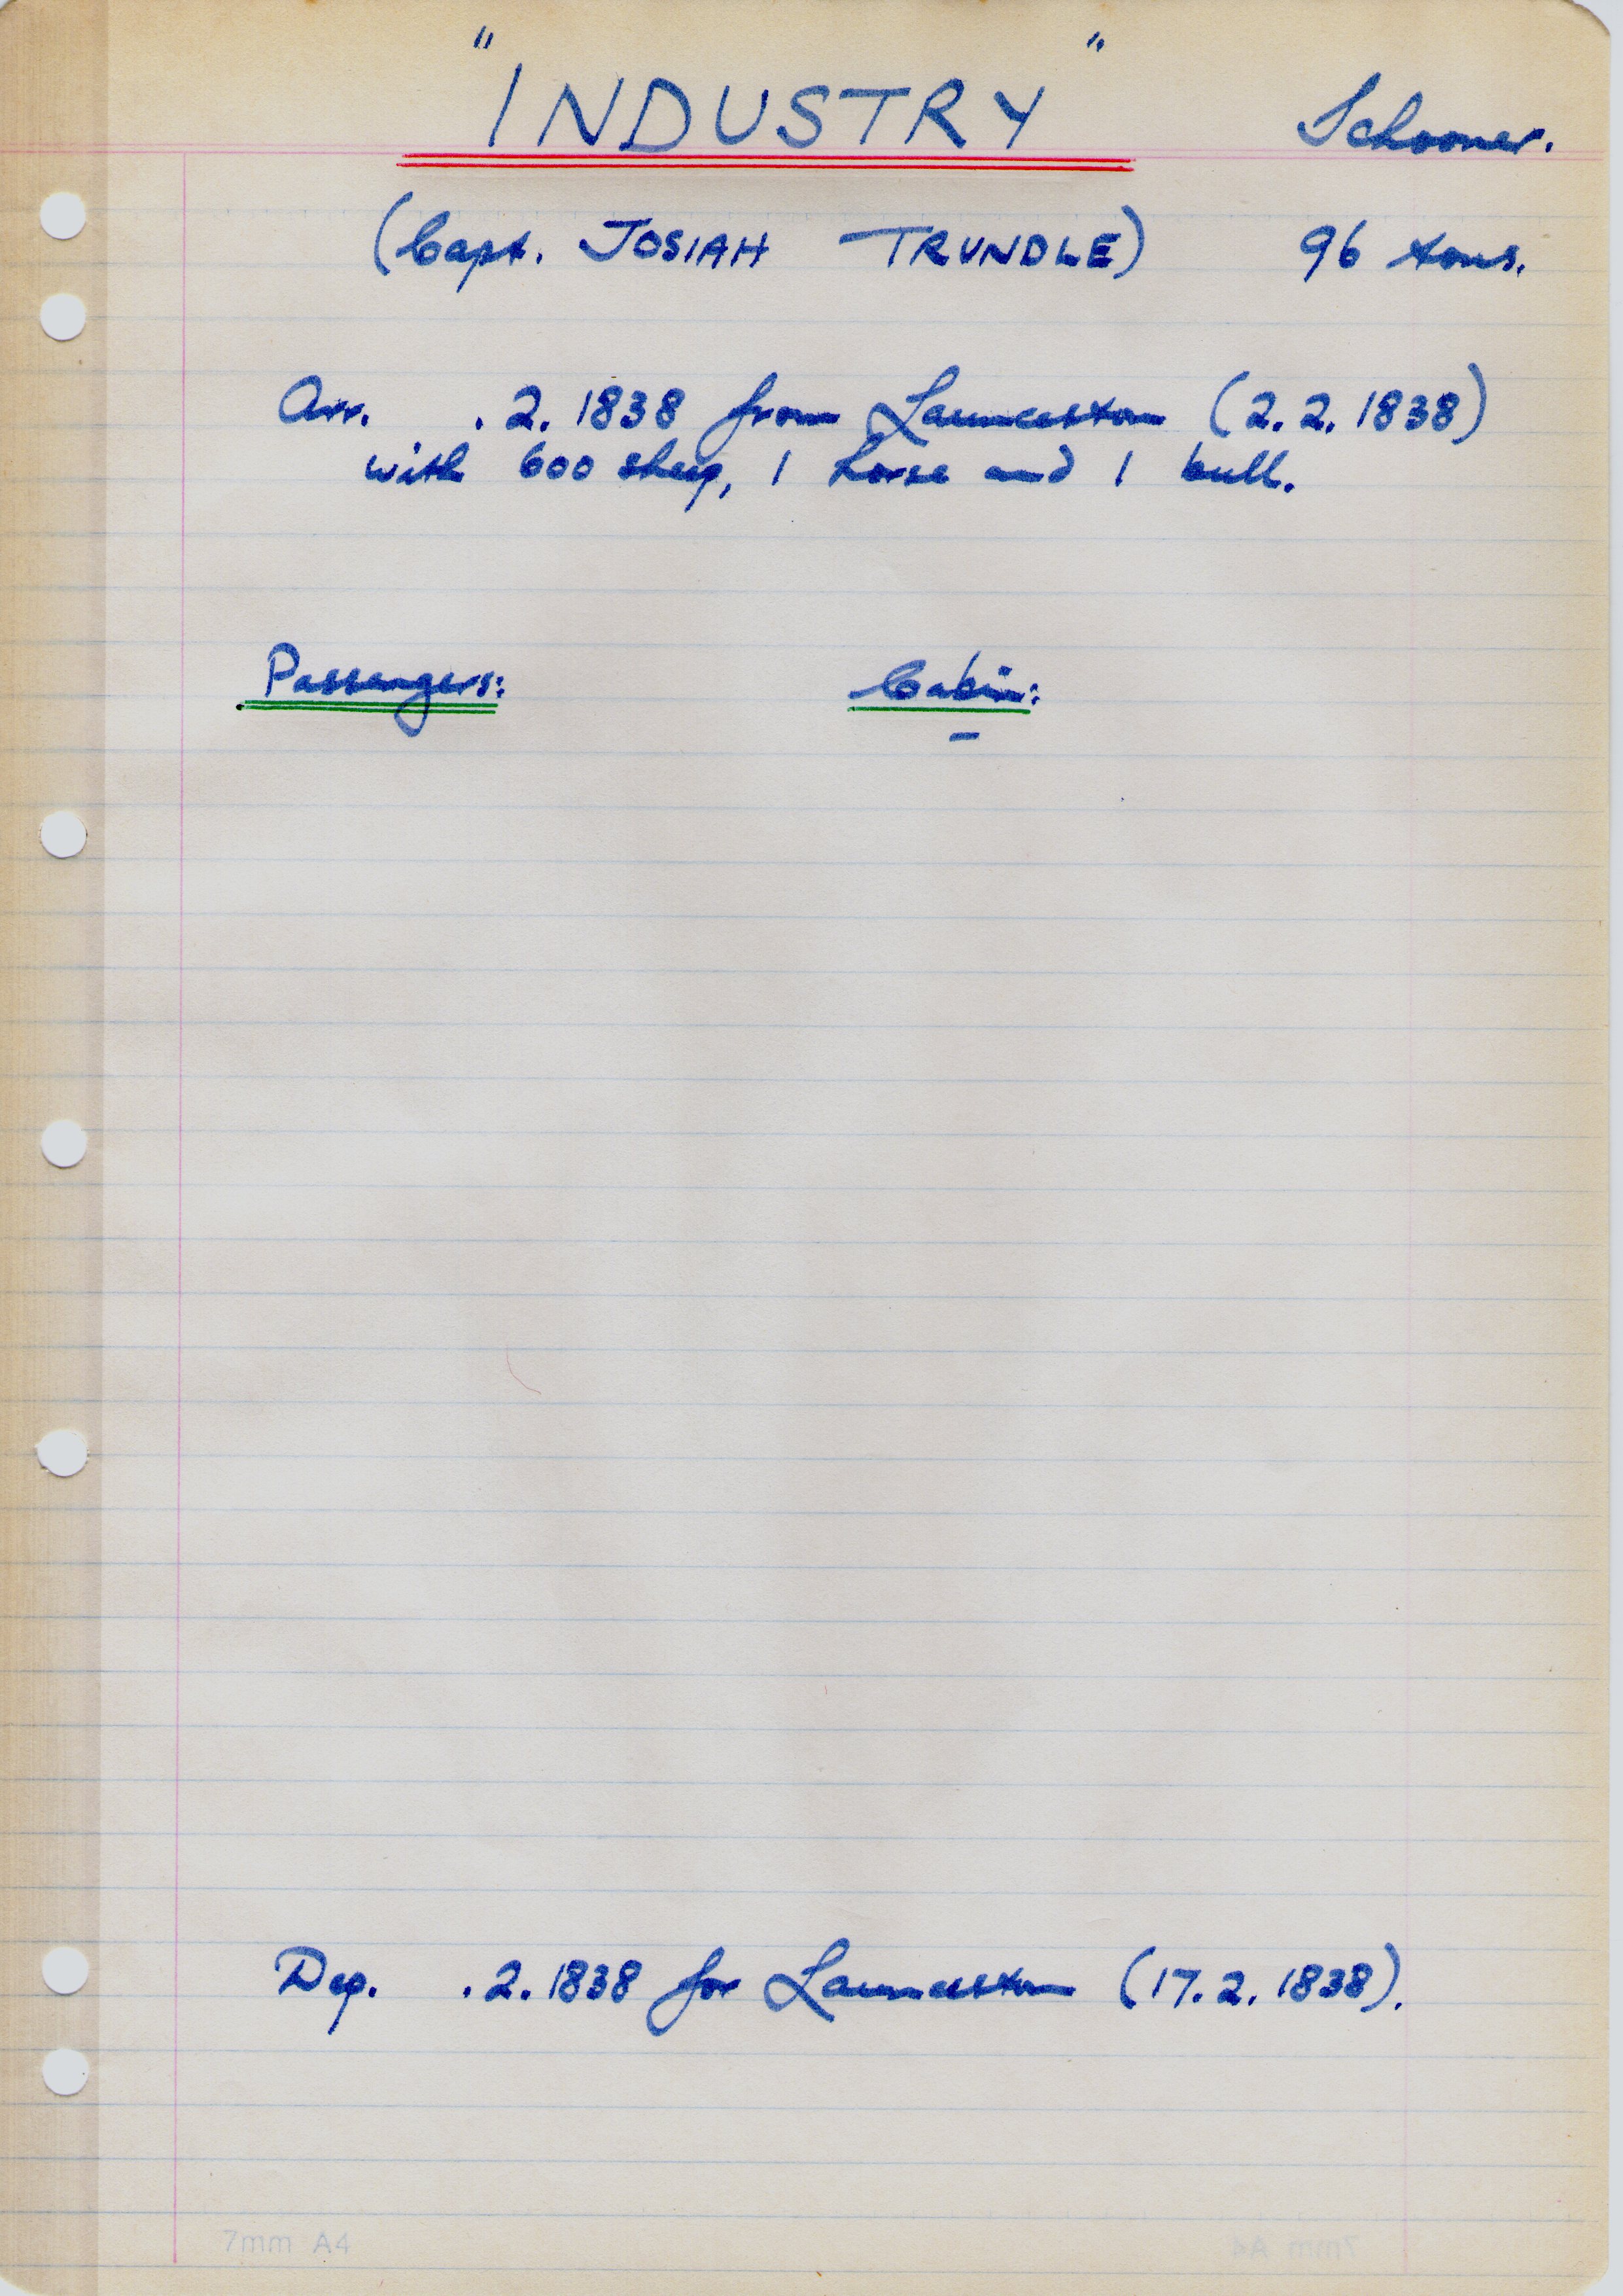 "INDUSTRY" Schooner.
(Capt. JOSIAH TRUNDLE) 96 tons.
Arr. . 2. 1838 from Launceston (2. 2. 1838)
with 600 sheep, 1 horse and 1 bull.
Passengers: Cabin:
–
Dep. . 2. 1838 for Launceston (17. 2. 1838).
7mm A4